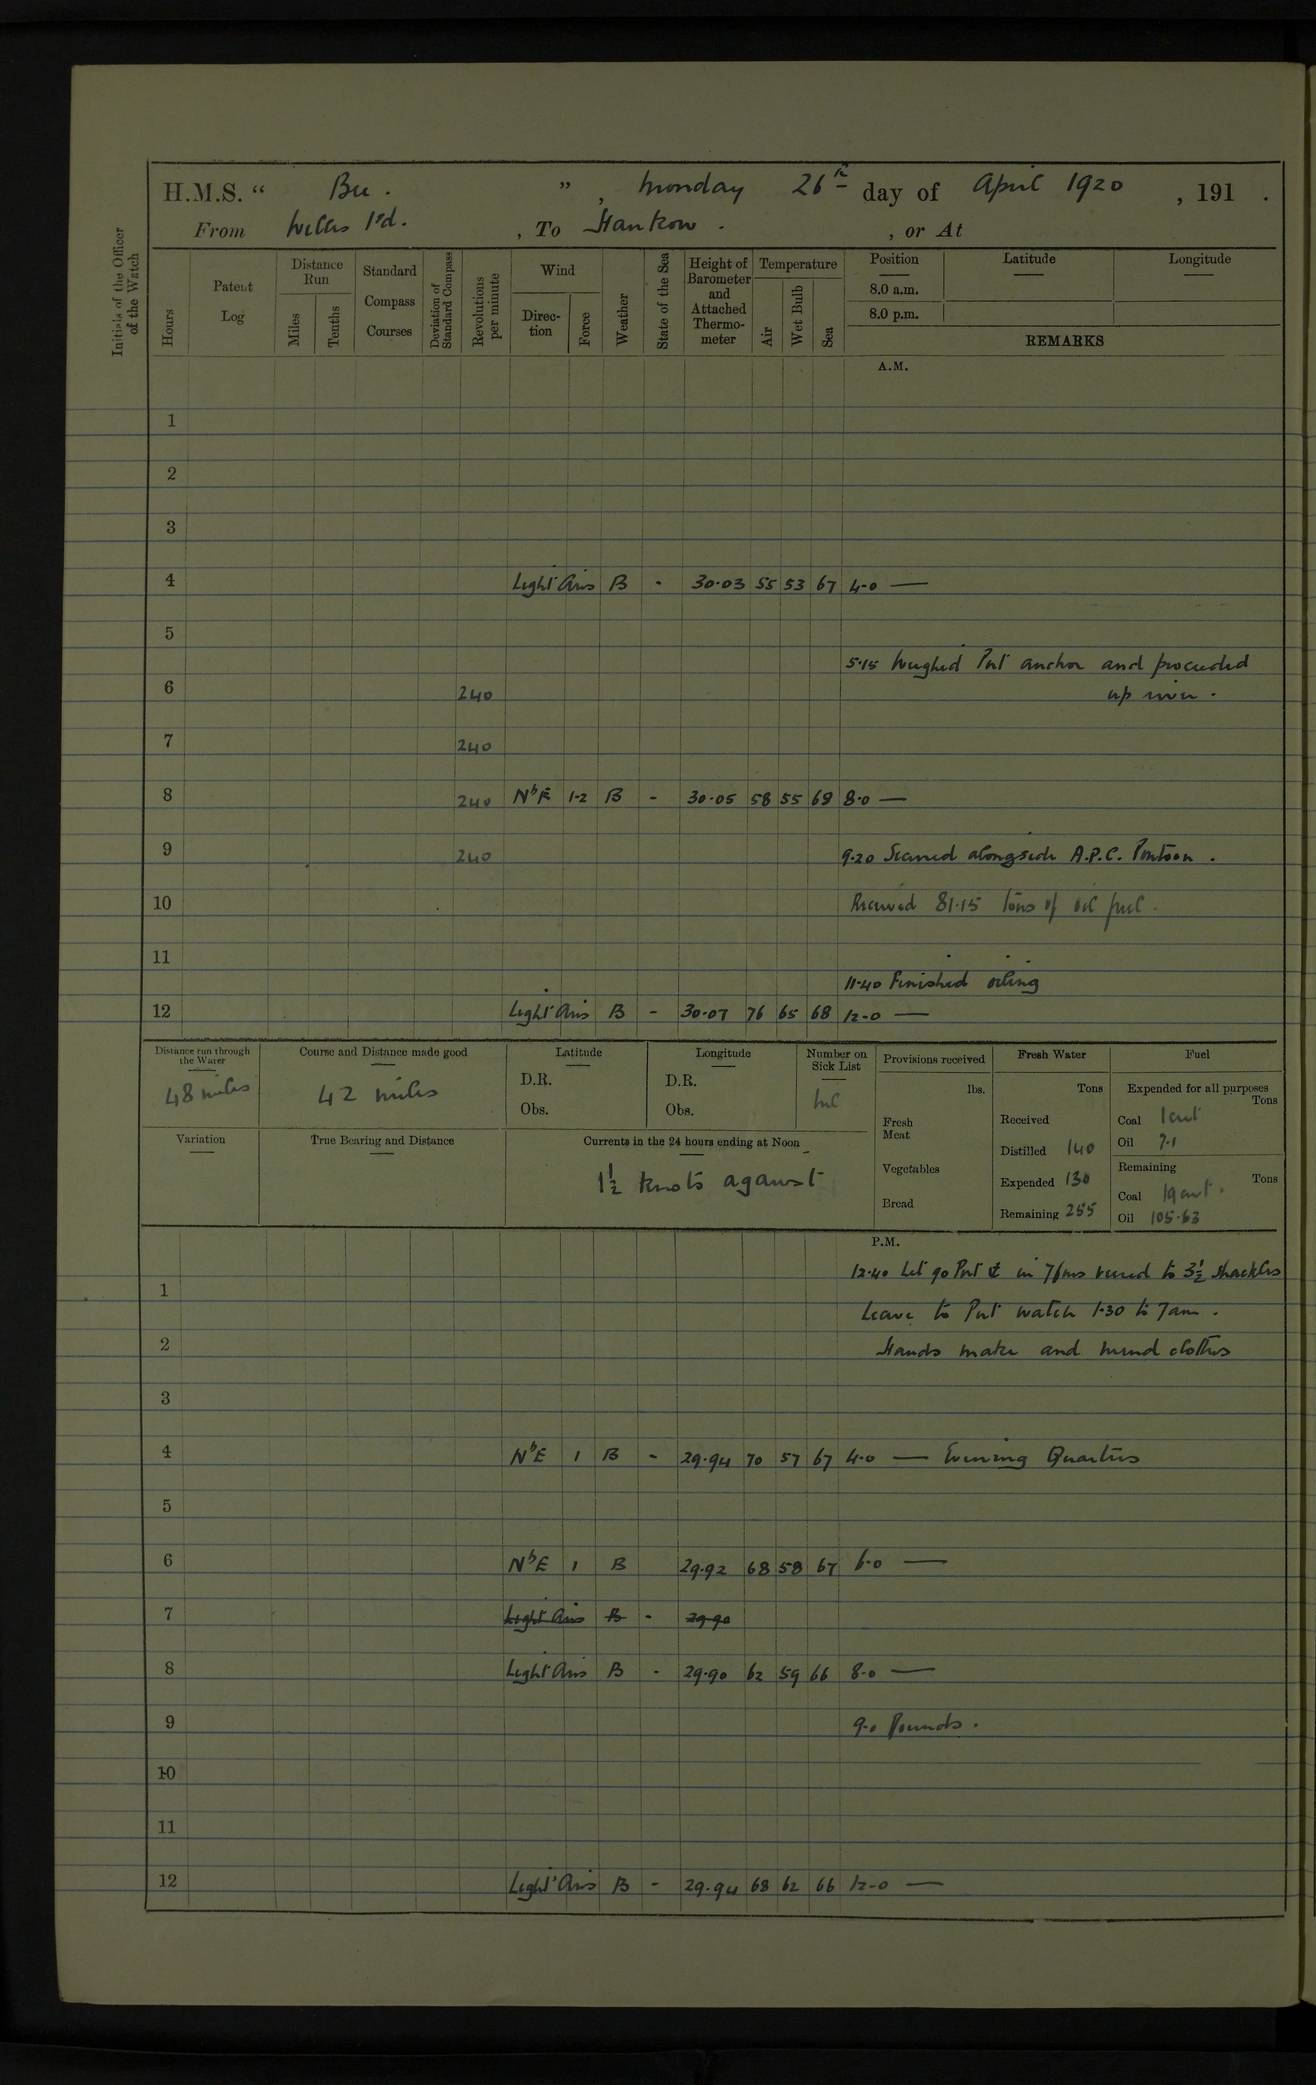 H.M.S. " Bee. ", Monday 26th day of April 1920, 191 .
From Wells Isd. , To Hankow . , or At
Initials of the Officer of the Watch
Hours
Patent Log
Distance Run
Miles
Tenths
Standard Compass Courses
Deviation of Standard Compass
Revolutions per minute
Wind
Direction
Force
Weather
State of the Sea
Height of Barometer and Attached Thermometer
Temperature
Air
Wet Bulb
Sea
Position
8.0 a.m.
8.0 p.m.
Latitude
Longitude
REMARKS
A.M.
1
2
3
4 Light Airs B - 30.03 55 53 67 4.0 —
5
5.15 Weighed Port anchor and proceeded
6 240 up river.
7 240
8 240 NbE 1-2 B - 30.05 58 55 69 8.0 —
9 240 9.20 Secured alongside A.P.C. Pontoon.
10 Received 81.15 tons of oil fuel.
11
11.40 Finished oiling
12 Light Airs B - 30.07 76 65 68 12.0 —
Distance run through the Water
48 miles
Course and Distance made good
42 miles
Latitude
D.R.
Obs.
Longitude
D.R.
Obs.
Number on Sick List
Nil
Variation
True Bearing and Distance
Currents in the 24 hours ending at Noon
1½ knots against
Provisions received
lbs.
Fresh Meat
Vegetables
Bread
Fresh Water
Tons
Received
Distilled 140
Expended 130
Remaining 255
Fuel
Expended for all purposes
Tons
Coal 1 cwt
Oil 7.1
Remaining
Tons
Coal 19 cwt.
Oil 105.63
P.M.
12.40 Let go Port ⚓ in 7 fms veered to 3½ shackles
1
Leave to Port watch 1.30 to 7am.
2 Hands make and mend clothes
3
4 NbE 1 B - 29.94 70 57 67 4.0 — Evening Quarters
5
6 NbE 1 B 29.92 68 58 67 6.0 —
7 Light Airs B - 29.90
8 Light Airs B - 29.90 62 59 66 8.0 —
9 9.0 Rounds.
10
11
12 Light Airs B - 29.94 68 62 66 12.0 —